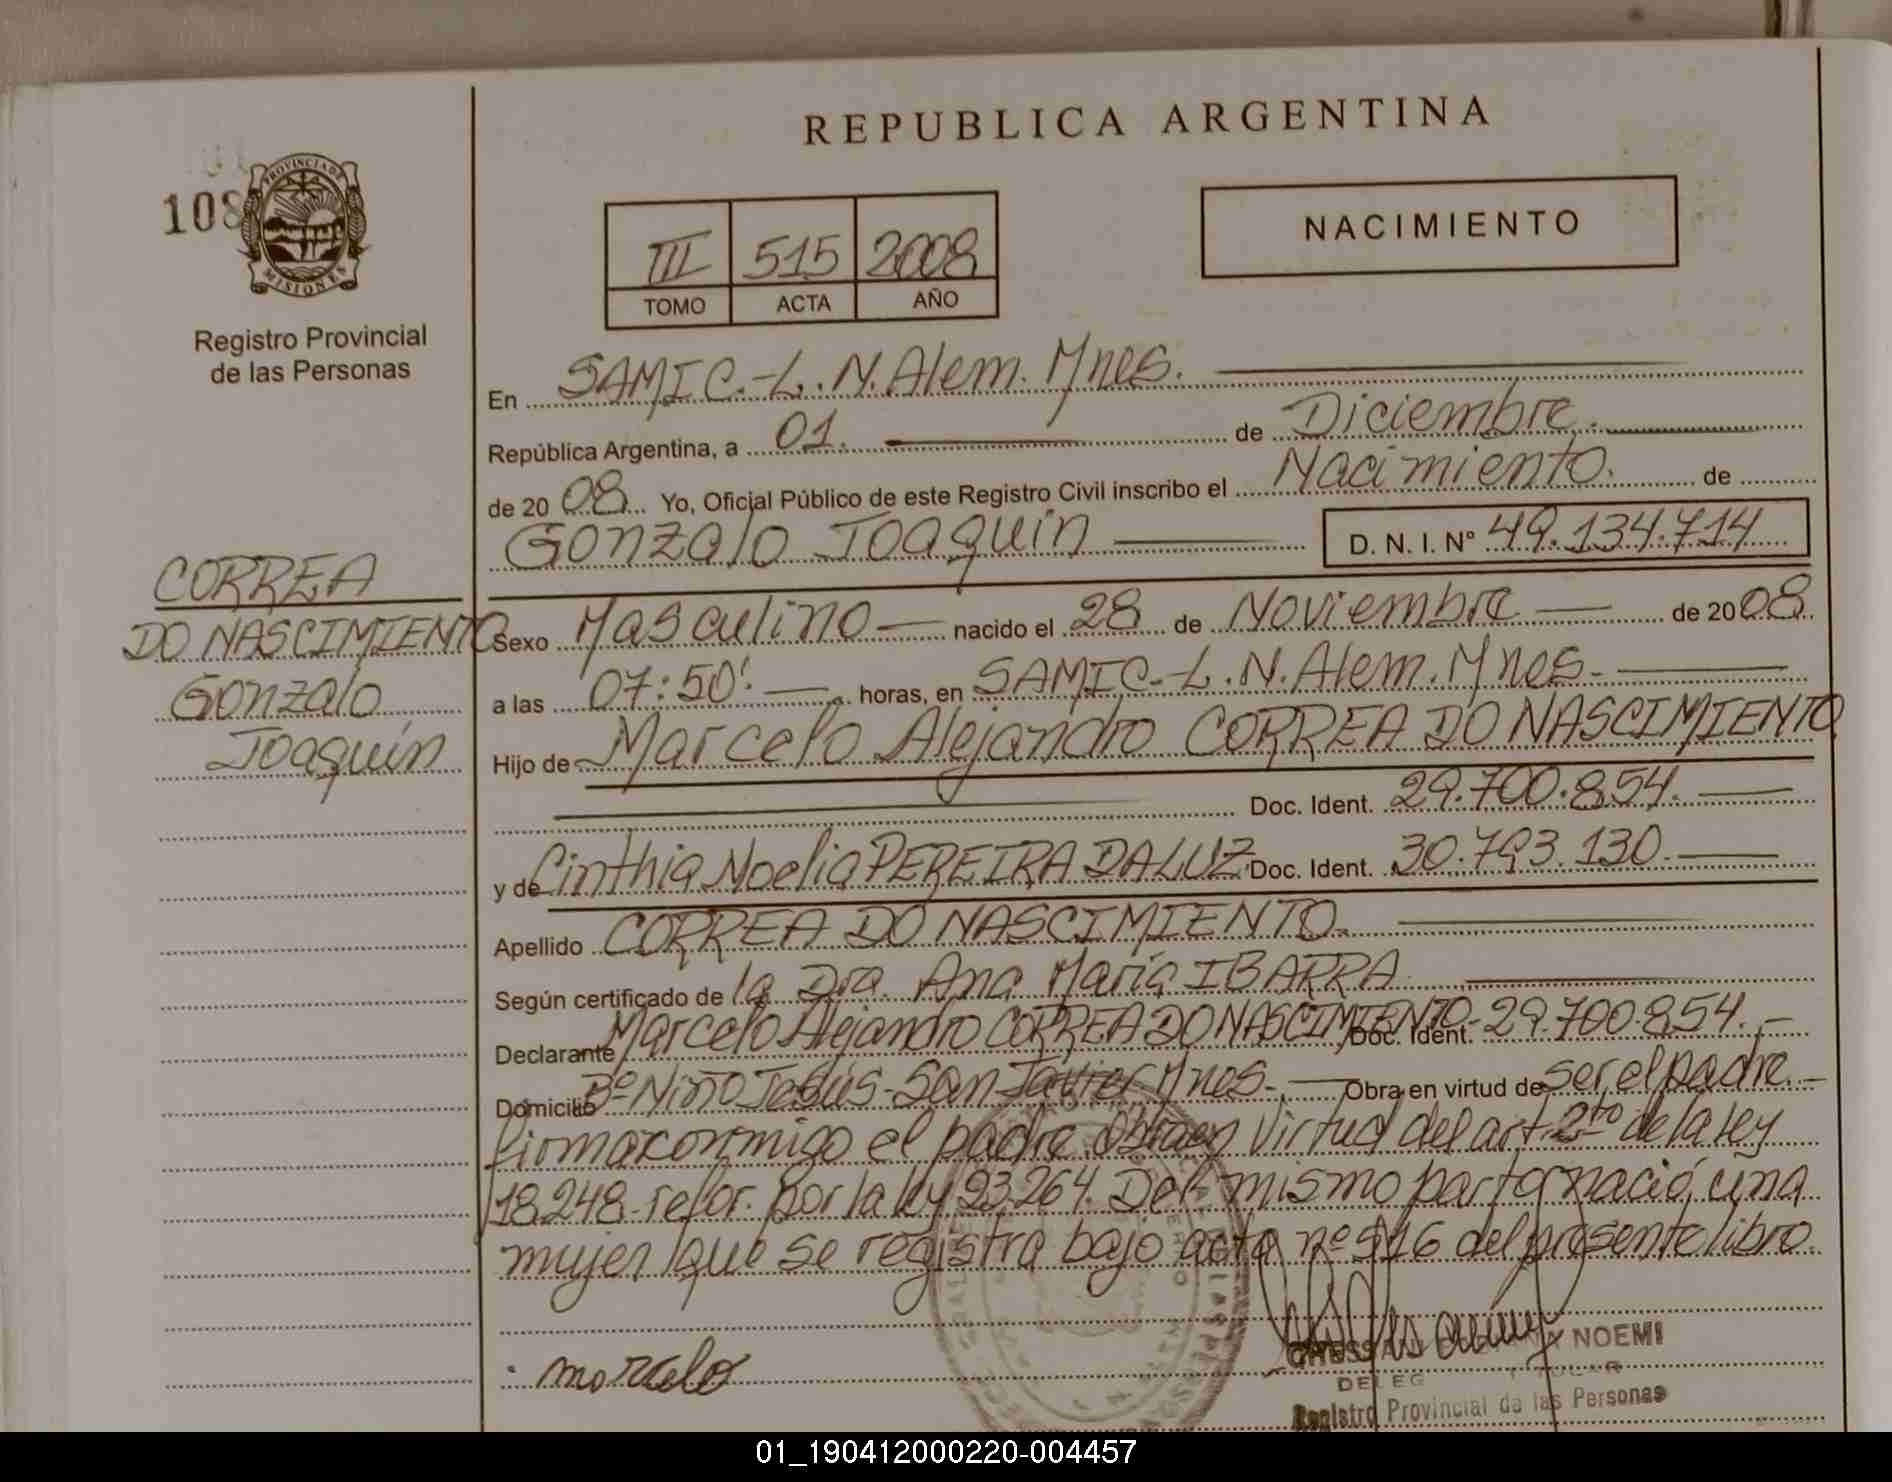 REPUBLICA ARGENTINA
108
PROVINCIA DE
MISIONES
Registro Provincial
de las Personas
III 515 2008
TOMO ACTA AÑO
NACIMIENTO
En SAMIC.-L.N.Alem.Mnes.
República Argentina, a 01. de Diciembre.
de 2008 Yo, Oficial Público de este Registro Civil inscribo el Nacimiento. de
Gonzalo Joaquín D. N. I. N° 49.134.714
CORREA
DO NASCIMIENTO
Gonzalo
Joaquín
Sexo Masculino nacido el 28 de Noviembre de 2008.
a las 07:50'. horas, en SAMIC.-L.N.Alem.Mnes.
Hijo de Marcelo Alejandro CORREA DO NASCIMIENTO
Doc. Ident. 29.700.854.
y de Cinthia Noelia PEREIRA DA LUZ Doc. Ident. 30.793.130.
Apellido CORREA DO NASCIMIENTO.
Según certificado de la Dra. Ana María IBARRA
Declarante Marcelo Alejandro CORREA DO NASCIMIENTO- Doc. Ident. 29.700.854.-
Domicilio B° Niño Jesús-San Javier Mnes. Obra en virtud de ser el padre.-
firma conmigo el padre. Obra en Virtud del art. 2to de la ley
18.248-refor. por la ley 23.264. Del mismo parto nació una
mujer que se registra bajo acta n° 516 del presente libro.
marcelo
NOEMI
Registro Provincial de las Personas
01_190412000220-004457